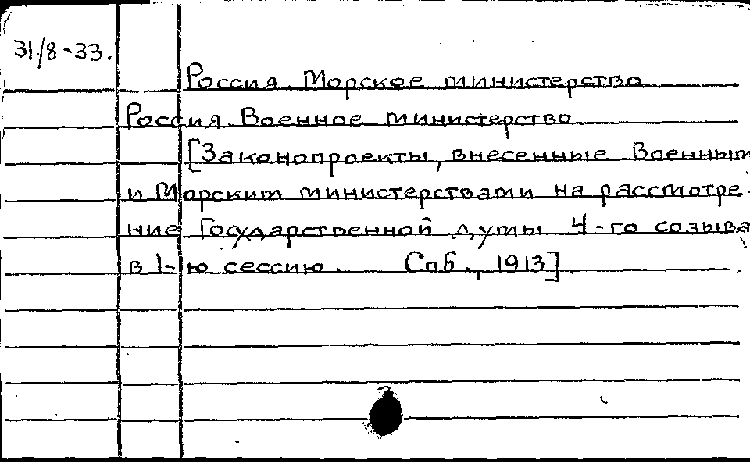 31/8-33.
Россия. Морское министерство
Россия. Военное министерство.
[Законопроекты, внесенные Военным
и Морским министерствами на рассмотре-
ние Государственной Думы 4-го созыва
в 1-ю сессию. Спб., 1913]